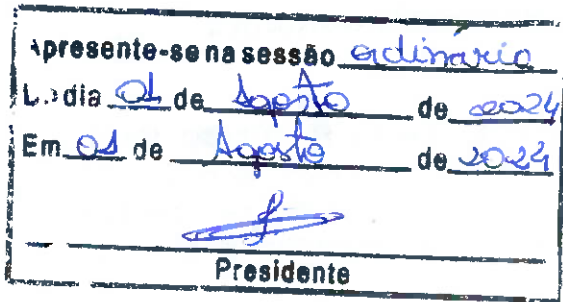 Apresente-se na sessão ordinária
do dia 01 de Agosto de 2024
Em 01 de Agosto de 2024
Presidente